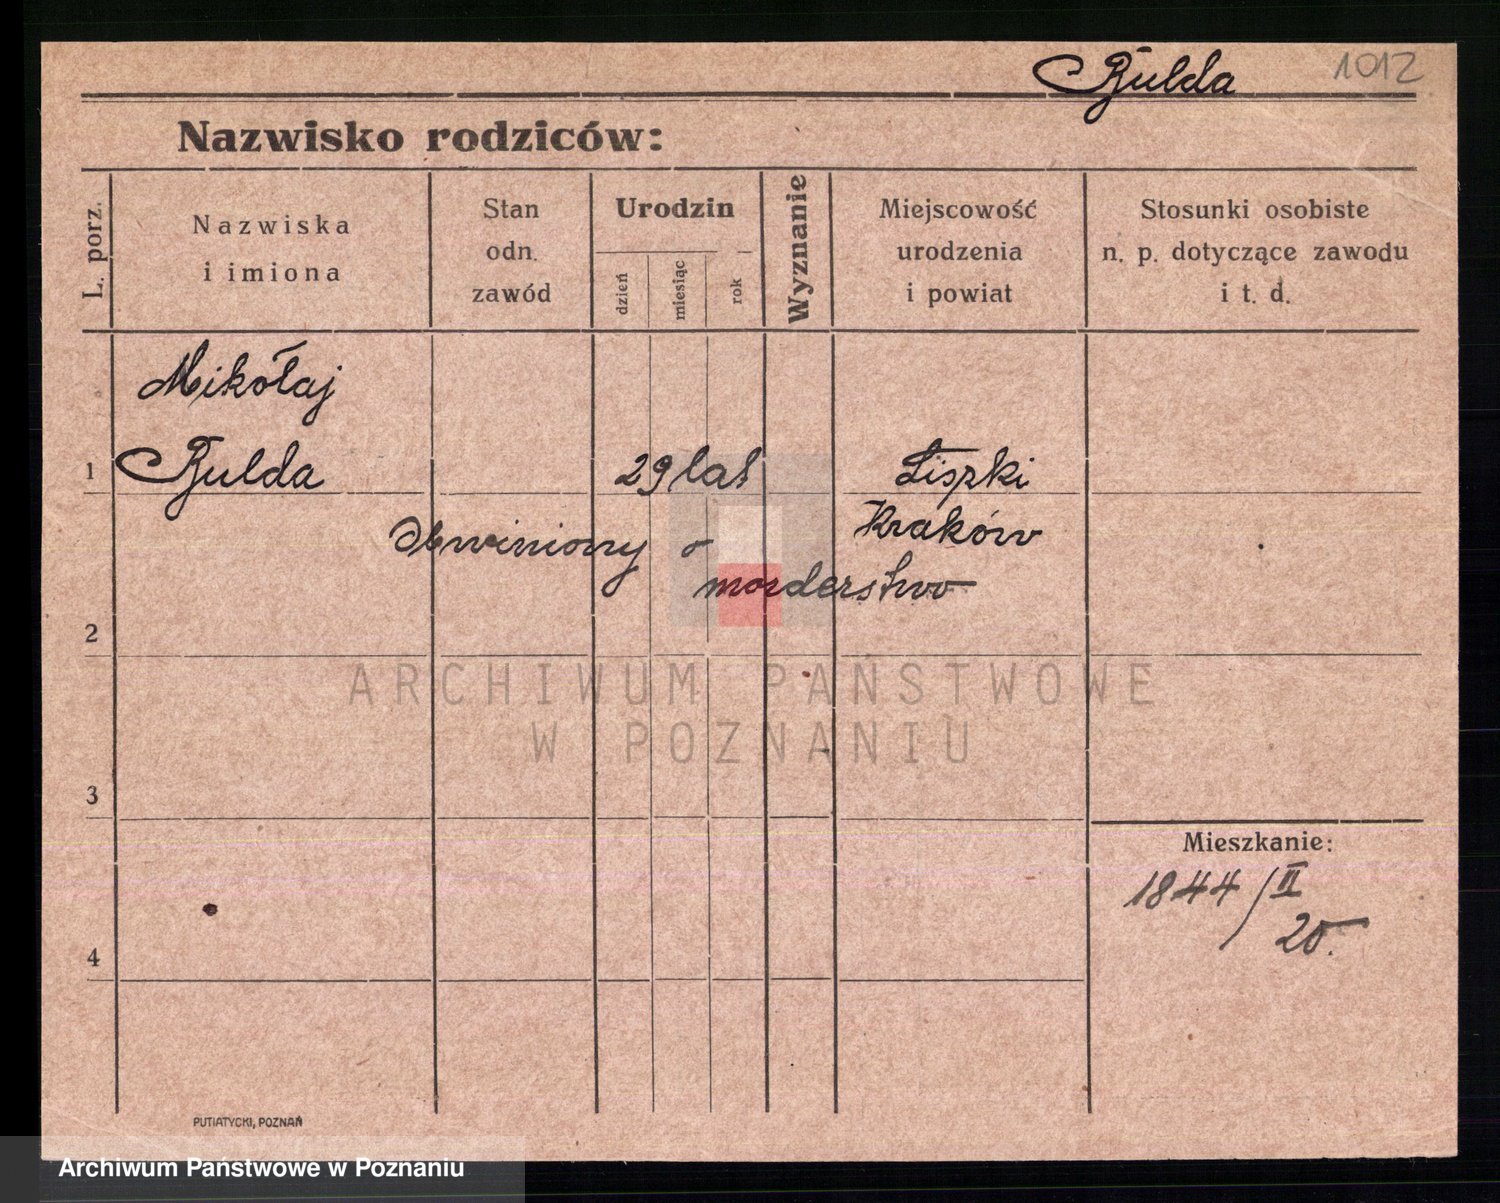 Bulda 1012
Nazwisko rodziców:
L. porz.
Nazwiska
i imiona
Stan
odn.
zawód
Urodzin
dzień
miesiąc
rok
Wyznanie
Miejscowość
urodzenia
i powiat
Stosunki osobiste
n. p. dotyczące zawodu
i t. d.
Mikołaj
1 Bulda 29 lat Liszki
Kraków
Obwiniony o
morderstwo
2
ARCHIWUM PAŃSTWOWE
W POZNANIU
3
Mieszkanie:
1844/II
20.
4
PUTIATYCKI, POZNAŃ
Archiwum Państwowe w Poznaniu